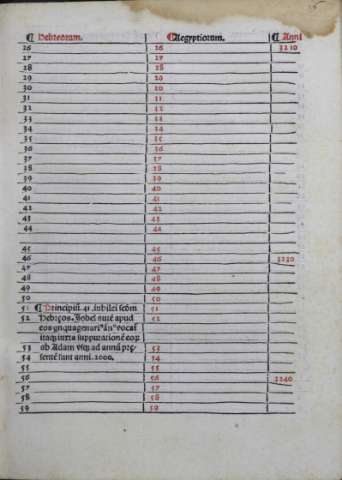 ¶ Hebreorum. ¶Aegyptiorum. ¶ Anni
26 26 3210
27 27
28 28
29 29
30 30
31 31
32 32
33 33
34 34
35 35
36 36
37 37
38 38
39 39
40 40
41 41
42 42
43 43
44 44
45 45
46 46 3230
47 47
48 48
49 49
50 50
51 ¶ Principiũ 41. iubilei scḋm 51
52 Hebręos. Jobel autẽ apud 52
eos
ita iuxta supputationẽ
53 ab Adam vsq; ad annũ prę 53
54 sentẽ sunt anni. 2000. 54
55 55
56 56 3240
57 57
58 58
59 59